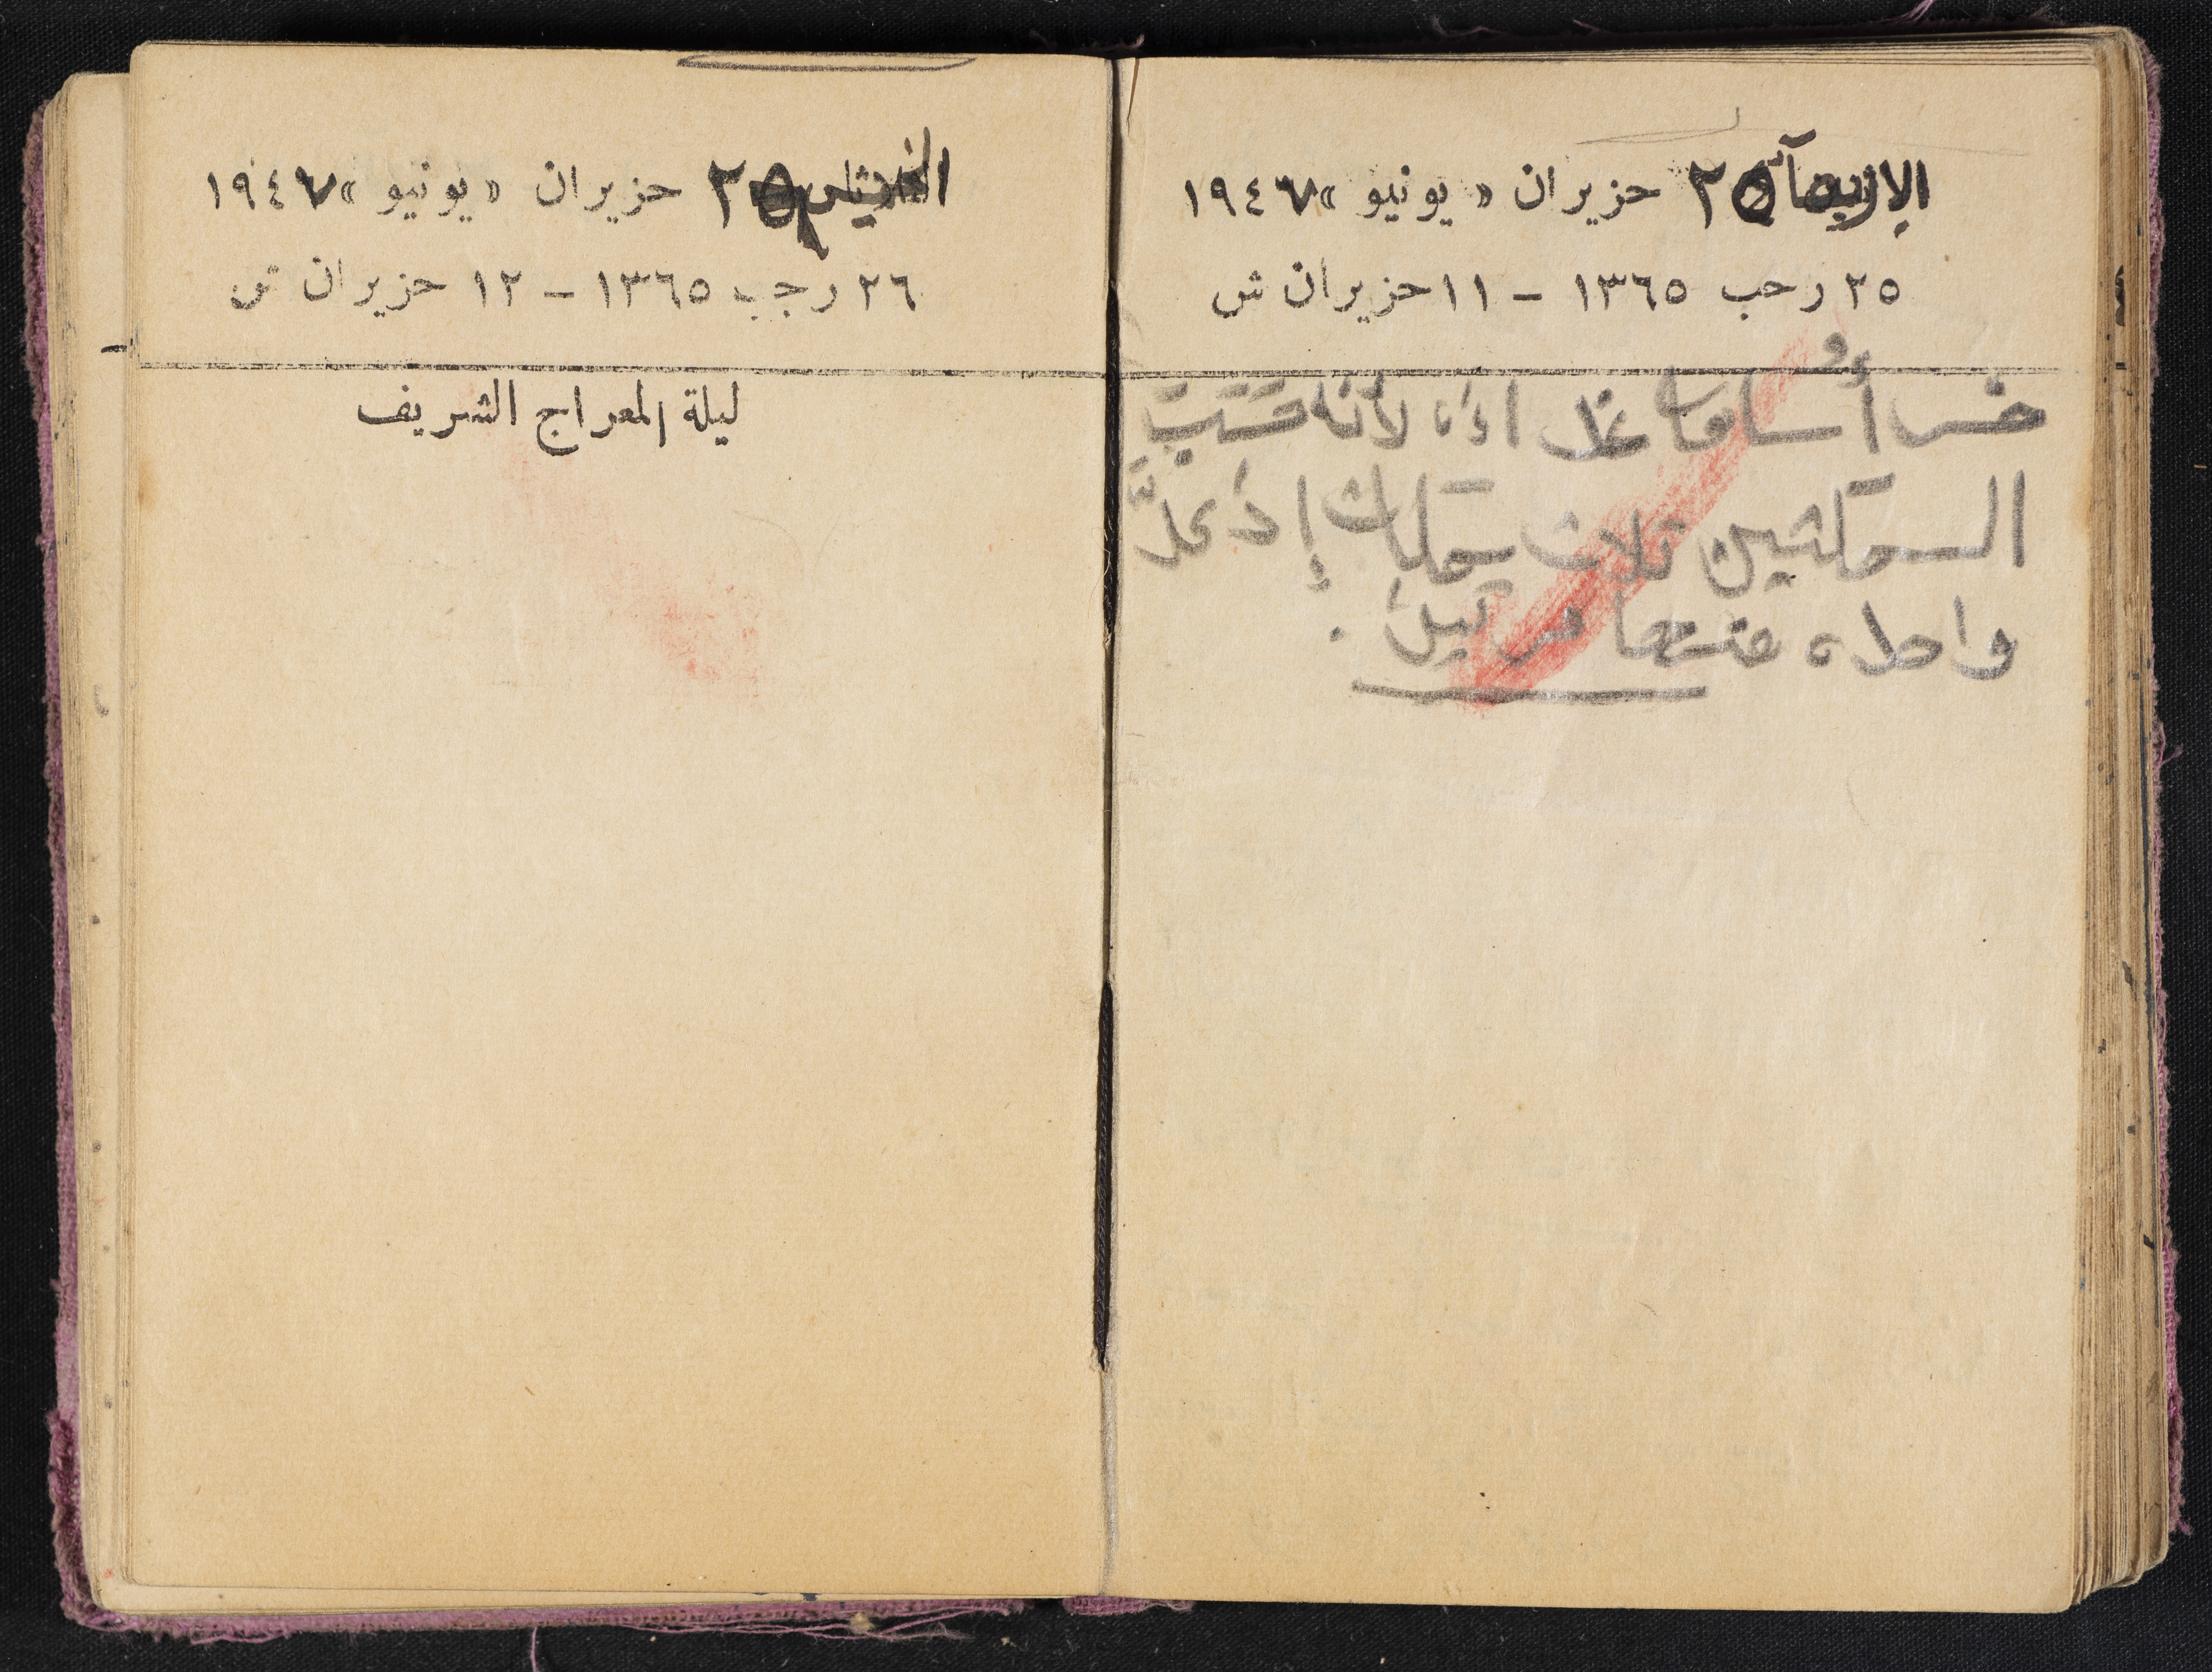 الاربعاء ٢٥ حزيران «يونيو» ١٩٤٧
٢٥ رجب ١٣٦٥ – ١١ حزيران ش
خسر أسامة اذاً لأنه حسب
السمكتين ثلاث سمكات إذ علَّ
واحدة منهما مرتين .
٢٥ حزيران «يونيو» ١٩٤٧
٢٦ رجب ١٣٦٥ – ١٢ حزيران ش
ليلة المعراج الشريف